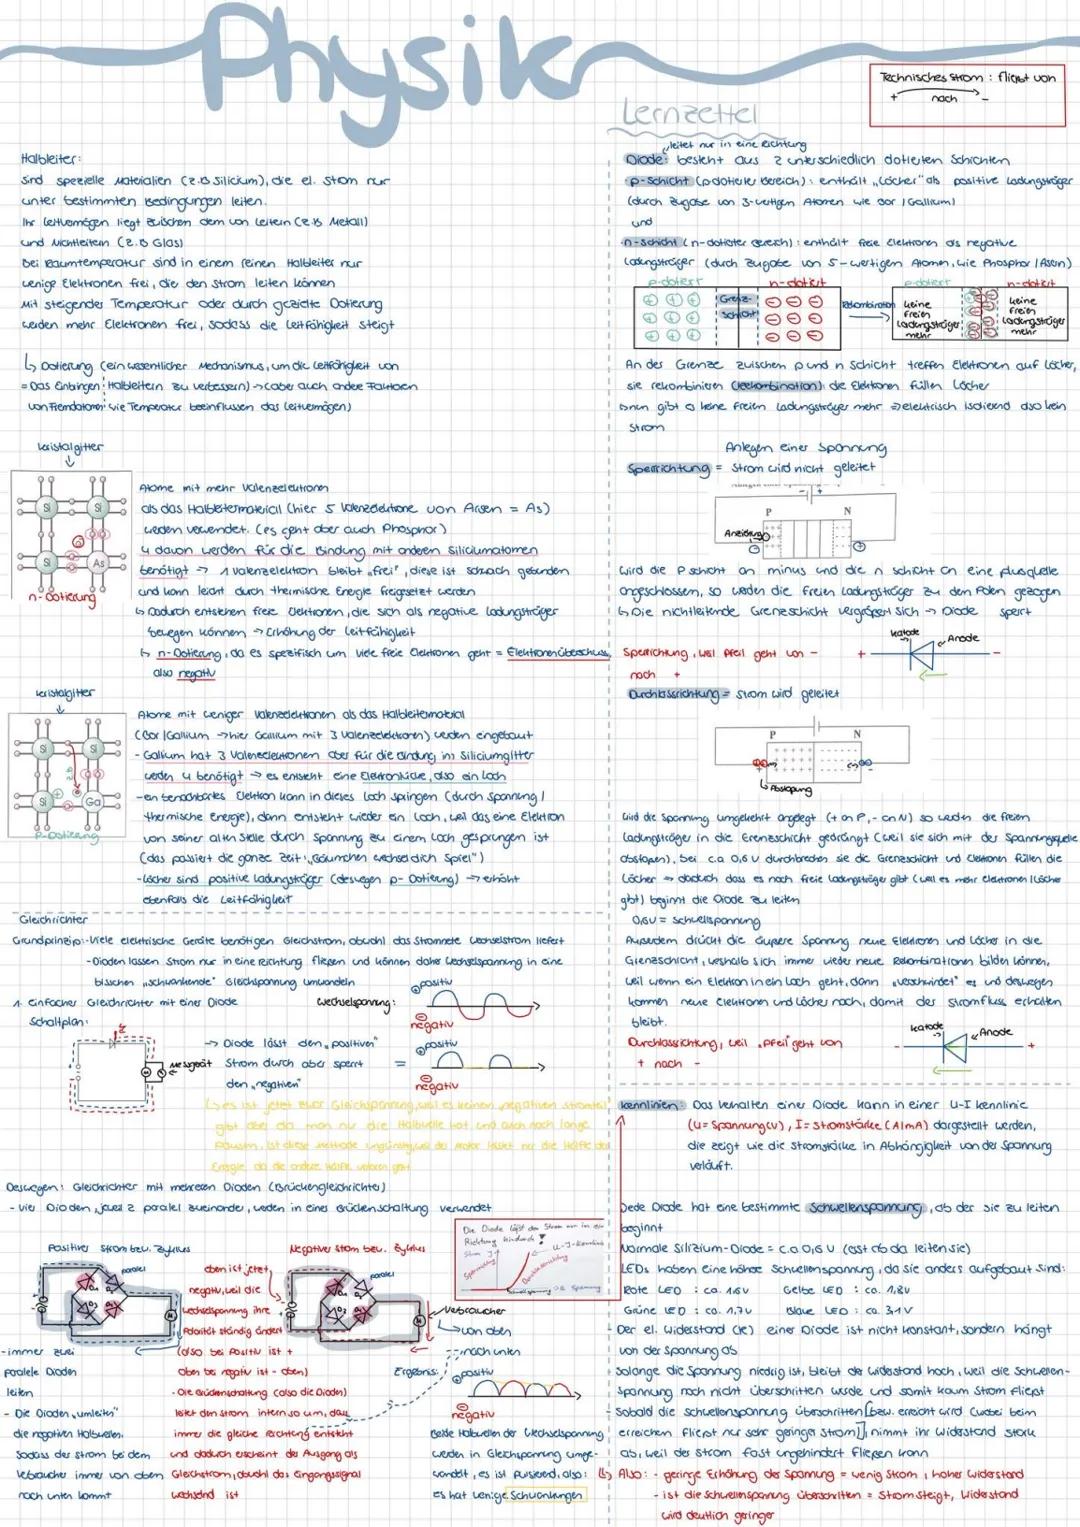 Physik
Lernzettel
Technisches Strom: fließt von
+ nach -
Halbleiter:
Sind spezielle Materialien (z.B Silicium), die el. Strom nur
unter bestimmten Bedingungen leiten.
Ihr Leitvermögen liegt zwischen dem von Leitern (z.B Metall)
und Nichtleitern (z.B Glas)
Bei Raumtemperatur sind in einem reinen Halbleiter nur
wenige Elektronen frei, die den Strom leiten können
Mit steigender Temperatur oder durch gezielte Dotierung
werden mehr Elektronen frei, sodass die Leitfähigkeit steigt
↳ Dotierung (ein wesentlicher Mechanismus, um die Leitfähigkeit von
= Das Einbringen Halbleitern zu verbessern) → (aber auch andere Faktoren
von Fremdatomen wie Temperatur beeinflussen das Leitvermögen)
Kristallgitter
Si
Si
Si
As
n-Dotierung
Atome mit mehr Valenzelektronen
als das Halbleitermaterial (hier 5 Valenzelektrone von Arsen = As)
werden verwendet. (es geht aber auch Phosphor)
4 davon werden für die Bindung mit anderen Siliciumatomen
benötigt → 1 Valenzelektron bleibt „frei", diese ist schwach gebunden
und kann leicht durch thermische Energie freigesetzt werden
↳ Dadurch entstehen freie Elektronen, die sich als negative Ladungsträger
bewegen können → Erhöhung der Leitfähigkeit
↳ n-Dotierung, da es spezifisch um viele freie Elektronen geht = Elektronenüberschuss,
also negativ
Kristallgitter
Si
Si
Si
Ga
p-Dotierung
Atome mit weniger Valenzelektronen als das Halbleitermaterial
(Bor/Gallium → hier Gallium mit 3 Valenzelektronen) werden eingebaut
- Gallium hat 3 Valenzelektronen aber für die Bindung ins Siliciumgitter
werden 4 benötigt → es entsteht eine Elektronlücke, also ein Loch
- ein benachbartes Elektron kann in dieses Loch springen (durch Spannung/
thermische Energie), dann entsteht wieder ein Loch, weil das eine Elektron
von seiner alten Stelle durch Spannung zu einem Loch gesprungen ist
(das passiert die ganze Zeit: „Bäumchen wechsel dich Spiel")
- Löcher sind positive Ladungsträger (deswegen p-Dotierung) → erhöht
ebenfalls die Leitfähigkeit
Gleichrichter
Grundprinzip: - Viele elektrische Geräte benötigen Gleichstrom, obwohl das Stromnetz Wechselstrom liefert
- Dioden lassen Strom nur in eine Richtung fließen und können daher Wechselspannung in eine
bisschen „schwankende" Gleichspannung umwandeln
1. einfacher Gleichrichter mit einer Diode
Schaltplan:
Messgerät
Wechselspannung:
positiv
negativ
→ Diode lässt den „positiven"
Strom durch aber sperrt
den „negativen"
=
positiv
negativ
↳ es ist jetzt zwar Gleichspannung, weil es keinen negativen Stromteil
gibt aber da man nur die Halbwelle hat und auch noch lange
Pausen, ist diese Methode ungünstig, weil der Motor läuft nur die Hälfte der
Energie da die andere Hälfte verloren geht
Deswegen: Gleichrichter mit mehreren Dioden (Brückengleichrichter)
- Vier Dioden, jeweils 2 paralel zueinander, werden in einer Brückenschaltung verwendet
Positiver Strom bzw. Zyklus
paralel
- immer zwei
paralele Dioden
leiten
- Die Dioden „umleiten"
die negativen Halbwellen
sodass der Strom bei dem
Verbraucher immer von oben
nach unten kommt
oben ist jetzt
negativ, weil die
Wechselspannung ihre
Polarität ständig ändert
(also bei positiv ist +
oben bei negativ ist - oben)
- Die Brückenschaltung (also die Dioden)
leitet den Strom intern so um, dass
immer die gleiche Richtung entsteht
und dadurch erscheint der Ausgang als
Gleichstrom, obwohl das Eingangssignal
wechselnd ist
Negativer Strom bzw. Zyklus
paralel
Verbraucher
↳ von oben
nach unten
Die Diode läßt den Strom nur in eine
Richtung hindurch!
U-I-Kennlinie
Sperrrichtung
Durchlassrichtung
Ergebnis:
positiv
negativ
Beide Halbwellen der Wechselspannung
werden in Gleichspannung umge-
wandelt, es ist pulsierend, also:
es hat wenige Schwankungen
„leitet nur in eine Richtung
Diode: besteht aus 2 unterschiedlich dotierten Schichten
p-Schicht (p-dotierter Bereich): enthält „Löcher" als positive Ladungsträger
(durch Zugabe von 3-wertigen Atomen wie Bor/Gallium)
und
n-Schicht (n-dotierter Bereich): enthält freie Elektronen als negative
Ladungsträger (durch Zugabe von 5-wertigen Atomen, wie Phosphor/Arsen)
p-dotiert
n-dotiert
Grenz-
schicht
Rekombination
p-dotiert
n-dotiert
keine
freien
Ladungsträger
mehr
keine
freien
Ladungsträger
mehr
An der Grenze zwischen p und n Schicht treffen Elektronen auf Löcher,
sie rekombinieren (Rekombination): die Elektronen füllen Löcher
↳ nun gibt es keine freien Ladungsträger mehr → elektrisch isolierend also kein
Strom
Anlegen einer Spannung
Sperrichtung = Strom wird nicht geleitet
P
N
Anziehung
Wird die P Schicht an minus und die n Schicht an eine plusquelle
angeschlossen, so werden die freien Ladungsträger zu den Polen gezogen
↳ Die nichtleitende Grenzschicht vergrößert sich → Diode sperrt
Sperrichtung, weil Pfeil geht von -
nach +
Katode
Anode
+
-
Durchlassrichtung = Strom wird geleitet
P
N
↳ Abstoßung
Wird die Spannung umgekehrt angelegt (+ an P, - an N) so werden die freien
Ladungsträger in die Grenzschicht gedrängt (weil sie sich mit der Spannungsquelle
abstoßen), bei c.a 0,6 V durchbrechen sie die Grenzschicht und Elektronen füllen die
Löcher → dadurch dass es noch freie Ladungsträger gibt (weil es mehr Elektronen/Löcher
gibt) beginnt die Diode zu leiten
0,6V = Schwellspannung
Außerdem drückt die äußere Spannung neue Elektronen und Löcher in die
Grenzschicht, weshalb sich immer wieder neue Rekombinationen bilden können,
weil wenn ein Elektron in ein Loch geht, dann „verschwindet" es und deswegen
kommen neue Elektronen und Löcher nach, damit der Stromfluss erhalten
bleibt.
Durchlassrichtung, weil „Pfeil" geht von
+ nach -
Katode
Anode
-
+
Kennlinien: Das Verhalten einer Diode kann in einer U-I Kennlinie
(U = Spannung (V), I = Stromstärke (A/mA) dargestellt werden,
die zeigt wie die Stromstärke in Abhängigkeit von der Spannung
verläuft.
Jede Diode hat eine bestimmte Schwellenspannung, ab der sie zu leiten
beginnt
Normale Silizium-Diode = c.a 0,6 V (erst ab da leiten sie)
LEDs haben eine höhere Schwellenspannung, da sie anders aufgebaut sind:
Rote LED: ca. 1,6V
Gelbe LED: ca. 1,8V
Grüne LED: ca. 1,7V
Blaue LED: ca. 3,1V
- Der el. Widerstand (R) einer Diode ist nicht konstant, sondern hängt
von der Spannung ab
Solange die Spannung niedrig ist, bleibt der Widerstand hoch, weil die Schwellen-
spannung noch nicht überschritten wurde und somit kaum Strom fließt
- Sobald die Schwellenspannung überschritten [bzw. erreicht wird (wobei beim
erreichen fließt nur sehr geringer Strom)], nimmt ihr Widerstand stark
ab, weil der Strom fast ungehindert fließen kann
↳ Also: - geringe Erhöhung der Spannung = wenig Strom, hoher Widerstand
- ist die Schwellenspannung überschritten = Strom steigt, Widerstand
wird deutlich geringer